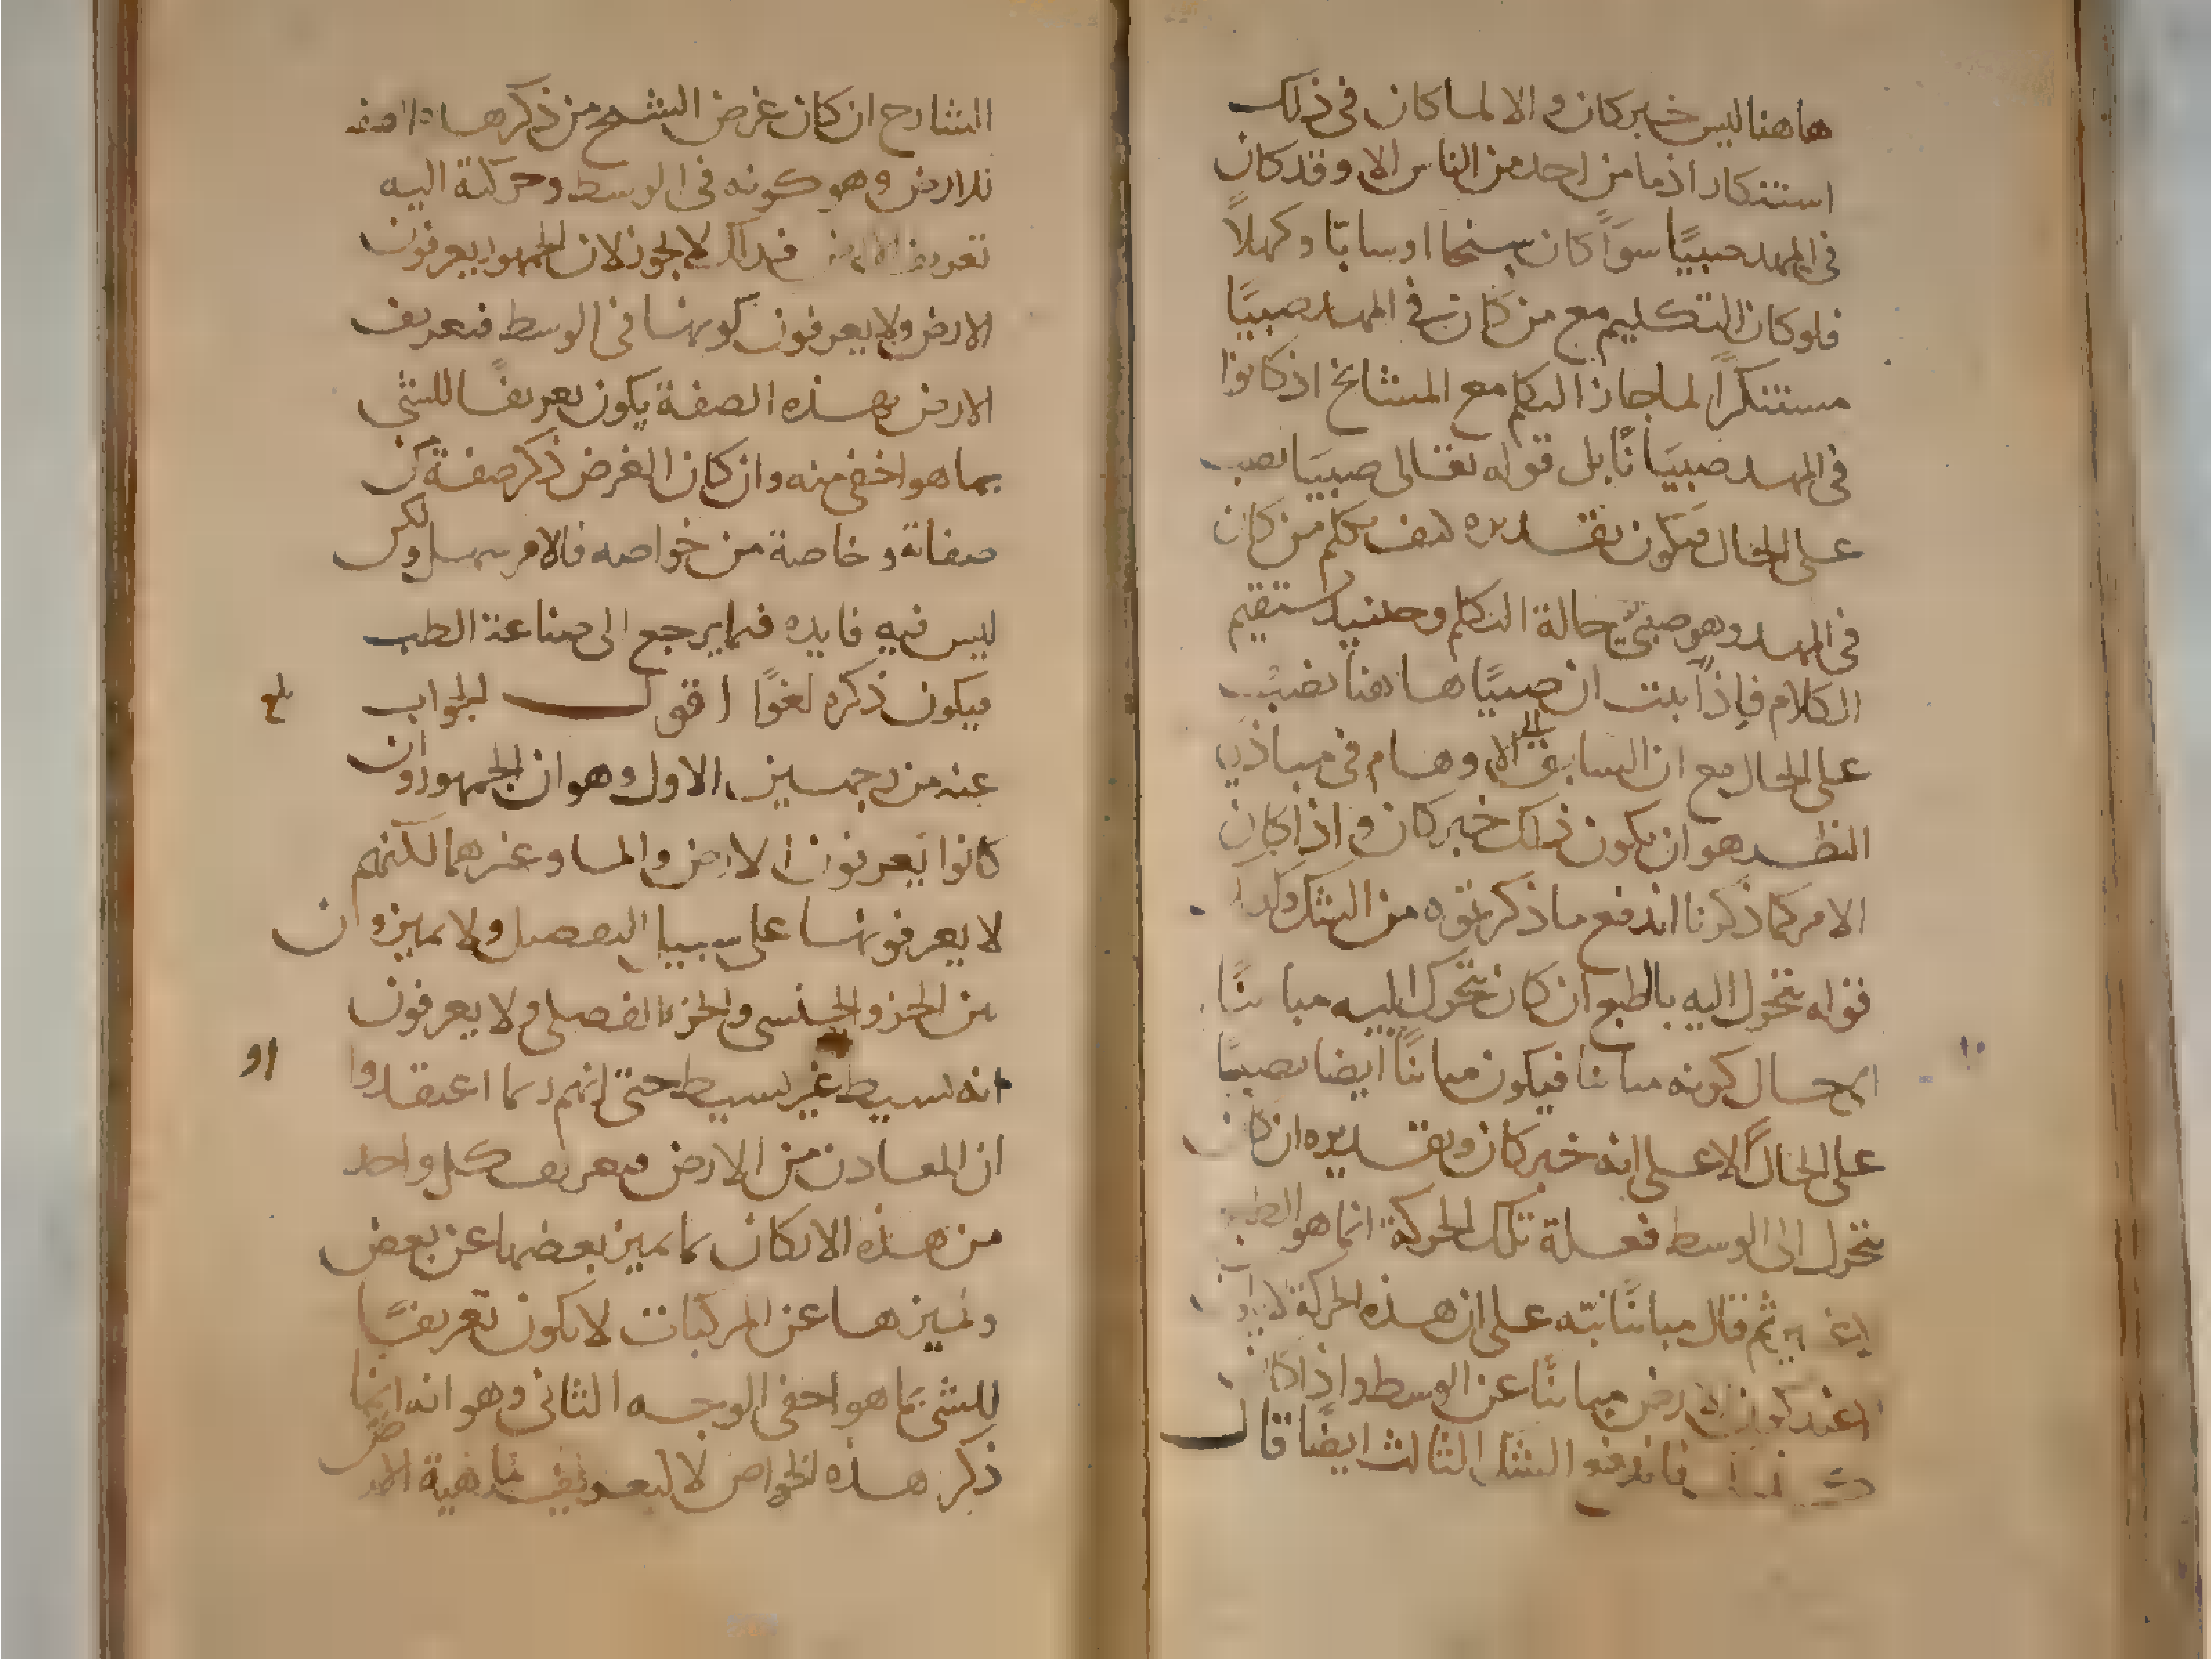 هاهنا ليس خبر كان والا لما كان في ذلك
استنكار اذ ما من احد من الناس الا وقد كان
في المهد صبيًا سوآ كان شيخا او شابّا وكهلاً
فلو كان التكليم مع من كان في المهد صبيًا
مستنكرًا لما جاز التكلم مع المشائخ اذ كانوا
في المهد صبيَانًا بل قوله تعالى صبيَا نصب
على الحال فيكون تقديره كيف نكلم من كان
في المهد وهو صبيٌ حالة التكلم وحينيد يستقيم
الكلام فاِذا ثبت ان صبيًا هاهنا نصب
على الحال مع ان السابق الى الاوهام في مباذي
النظر هو ان يكون ذلك خبر كان واذا كان
الامر كما ذكرنا اندفع ما ذكرتموه من الشك وكذا
قوله يتحرك اليه بالطبع ان كان يتحرك اليه مباينًا
الا حال كونه مباينا فيكون مباينًا ايضا نصبًا
على الحال لا على انه خبر كان وتقديره ان كان
يتحرك الى الوسط فعلة تلك الحركة انما هو الطبع
ثم قال مباينًا نبّه على ان هذه الحركة
عند كون الارض مباينًا عن الوسط واذا كان
فاندفع الشك الثالث ايضًا قال
الشارح ان كان غرض الشيخ من ذكر هذا
للارض وهو كونه في الوسط وحركته اليه
تعريف الارض فذلك لا يجوز لان الجمهور يعرفون
الارض ولا يعرفون كونها في الوسط فتعريف
الارض بهذه الصفة يكون تعريفًا للشي
بما هو اخفى منه وان كان الغرض ذكر صفة من
صفاته وخاصة من خواصه فالامر سهل ولكن
ليس فيه فايده فيما يرجع الى صناعة الطب
فيكون ذكره لغوًا اقول الجواب
عنه من وجهين الاول وهو ان الجمهور وان
كانوا يعرفون الارض والما وغيرهما لكنهم
لا يعرفونها على سبيل التفصيل ولا يميزون
بين الجزو الجنسي والجزء الفصلي ولا يعرفون
انه بسيط غير بسيط حتى انهم ربما اعتقدوا
او
ان المعادن من الارض فتعريف كل واحد
من هذه الاركان بما يميز بعضها عن بعض
وتميزها عن المركبات لا يكون تعريفًا
للشي بما هو اخفى الوجه الثاني وهو انه انما
ذكر هذه الخواص لا لتعريف ماهية الارض